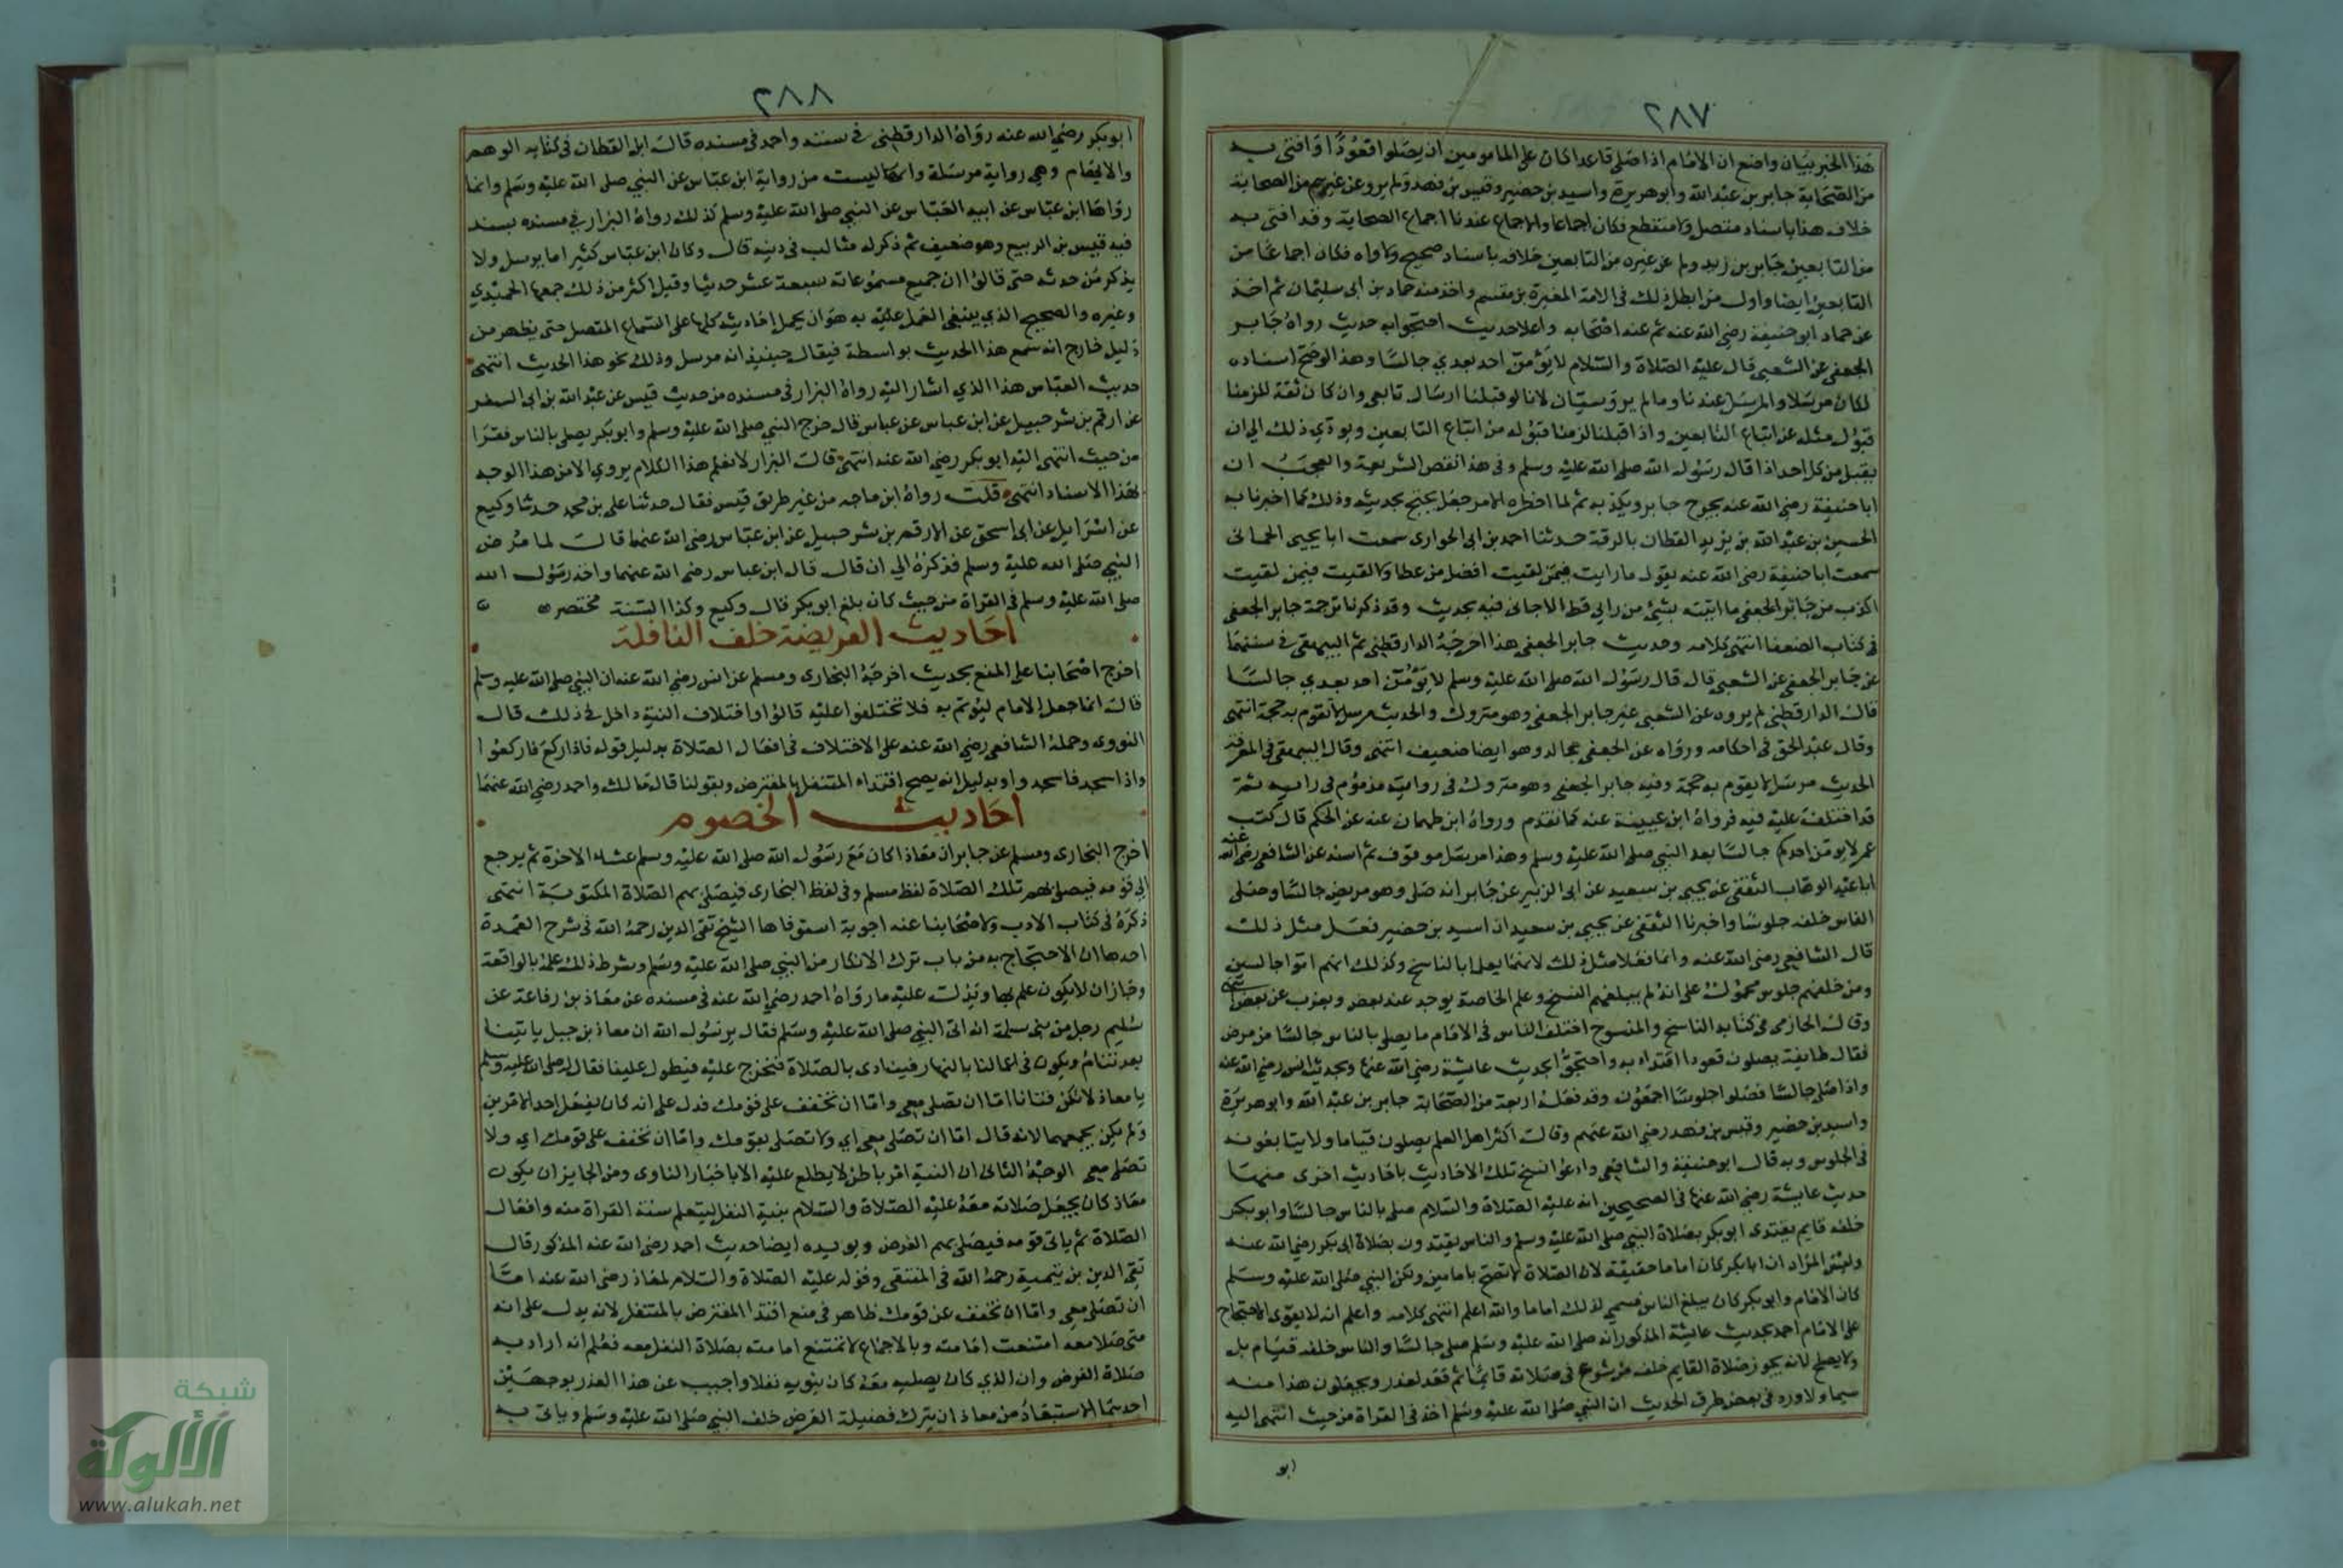 ٢٨٧
هذا الخبر بيان واضح ان الامام اذا صلى قاعدا كان على المامومين ان يصلوا قعودا وافتى به
من الصحابة جابر بن عبد الله وابو هريرة واسيد بن حضير وقيس بن فهد ولم يرو عن غيرهم من الصحابة
خلاف هذا باسناد متصل ولا منقطع فكان اجماعا والاجماع عندنا اجماع الصحابة وقد افتى به
من التابعين جابر بن زيد ولم عن غيره من التابعين خلافه باسناد صحيح ولا واه فكان اجماعا من
التابعين ايضا واول من ابطل ذلك في الامة المغيرة بن مقسم واخذ منه حماد بن ابي سليمان ثم اخذ
عن حماد ابو حنيفة رضي الله عنه ثم عنه اصحابه واعلا حديث احتجوا به حديث رواه جابر
الجعفي عن الشعبي قال عليه الصلاة والسلام لا يؤمن احد بعدي جالسا وهذا لو صح اسناده
لكان مرسلا والمرسل عندنا وما لم يرو سيان لانا لو قبلنا ارسال تابعي وان كان ثقة للزمنا
قبول مثله عن اتباع التابعين واذا قبلنا لزمنا قبوله من اتباع التابعين ويودي ذلك الى ان
يقبل من كل احد اذا قال رسول الله صلى الله عليه وسلم وفي هذا نقض الشريعة والعجب ان
ابا حنيفة رضي الله عنه يجرح جابر ويكذبه ثم لما اضطره الامر جعل يحتج بحديثه وذلك كما اخبرنا به
الحسين بن عبد الله بن يزيد القطان بالرقة حدثنا احمد بن ابي الحواري سمعت ابا يحيى الحماني
سمعت ابا حنيفة رضي الله عنه يقول ما رايت فيمن لقيت افضل من عطا ولا لقيت فيمن لقيت
اكذب من جابر الجعفي ما اتيته بشيء من رايي قط الا جاني فيه بحديث وقد ذكرنا ترجمة جابر الجعفي
في كتاب الضعفا انتهى كلامه وحديث جابر الجعفي هذا اخرجه الدارقطني ثم البيهقي في سننهما
عن جابر الجعفي عن الشعبي قال قال رسول الله صلى الله عليه وسلم لا يؤمن احد بعدي جالسا
قال الدارقطني لم يروه عن الشعبي غير جابر الجعفي وهو متروك والحديث مرسل لا تقوم به حجة انتهى
وقال عبد الحق في احكامه ورواه عن الجعفي مجالد وهو ايضا ضعيف انتهى وقال البيهقي في المعرفة
الحديث مرسل لا يقوم به حجة وفيه جابر الجعفي وهو متروك في روايته مذموم في رايه ثم
قد اختلف عليه فيه فرواه ابن عيينة عنه كما تقدم ورواه ابن طهمان عنه عن الحكم قال كتب
عمر لا يؤمن احدكم جالسا بعد النبي صلى الله عليه وسلم وهذا مرسل موقوف ثم اسند عن الشافعي رضي الله عنه
ابا عبد الوهاب الثقفي عن يحيى بن سعيد عن ابي الزبير عن جابر انه صلى وهو مريض جالسا وصلى
الناس خلفه جلوسا واخبرنا الثقفي عن يحيى بن سعيد ان اسيد بن حضير فعل مثل ذلك
قال الشافعي رضي الله عنه وانما فعلا مثل ذلك لانهما يعلما بالناسخ وكذلك انهم اتوا جالسين
ومن خلفهم جلوس محمول على انه لم يبلغهم النسخ وعلم الخاصة يوجد عند بعض ويعزب عن بعض انتهى
وقال الحازمي في كتابه الناسخ والمنسوخ اختلف الناس في الامام ما يصلي بالناس جالسا من مرض
فقال طايفة يصلون قعودا اقتداء به واحتجوا بحديث عايشة رضي الله عنها وبحديث انس رضي الله عنه
واذا صلى جالسا فصلوا جلوسا اجمعون وقد فعله اربعة من الصحابة جابر بن عبد الله وابو هريرة
واسيد بن حضير وقيس بن فهد رضي الله عنهم وقال اكثر اهل العلم يصلون قياما ولا يتابعونه
في الجلوس وبه قال ابو حنيفة والشافعي وادعوا نسخ تلك الاحاديث باحاديث اخرى منها
حديث عايشة رضي الله عنها في الصحيحين انه عليه الصلاة والسلام صلى بالناس جالسا وابو بكر
خلفه قايم يقتدي ابو بكر بصلاة النبي صلى الله عليه وسلم والناس يقتدون بصلاة ابي بكر رضي الله عنه
وليس المراد ان ابا بكر كان اماما حقيقة لان الصلاة لا تصح بامامين ولكن النبي صلى الله عليه وسلم
كان الامام وابو بكر كان يبلغ الناس فسمي لذلك اماما والله اعلم انتهى كلامه واعلم انه لا يقوى الاحتجاج
على الامام احمد بحديث عايشة المذكور انه صلى الله عليه وسلم صلى جالسا والناس خلفه قيام بل
ولا يصلح لانه يجوز صلاة القايم خلف من شرع في صلاته قائما ثم قعد لعذر ويجعلون هذا منه
سيما ولا ورد في بعض طرق الحديث ان النبي صلى الله عليه وسلم اخذ في القراة من حيث انتهى اليه
ابو
٢٨٨
ابو بكر رضي الله عنه رواه الدارقطني في سننه واحمد في مسنده قال ابن القطان في كتابه الوهم
والايهام وهي رواية مرسلة وانها ليست من رواية ابن عباس عن النبي صلى الله عليه وسلم وانما
رواها ابن عباس عن ابيه العباس عن النبي صلى الله عليه وسلم كذلك رواه البزار في مسنده بسند
فيه قيس بن الربيع وهو ضعيف ثم ذكر له مثالب في دينه قال وكان ابن عباس كثيرا ما يرسل ولا
يذكر من حدثه حتى قالوا ان جميع مسموعاته سبعة عشر حديثا وقيل اكثر من ذلك جمعها الحميدي
وغيره والصحيح الذي ينبغي العمل عليه به هو ان يحمل احاديثه كلها على السماع المتصل حتى يظهر من
دليل خارج انه سمع هذا الحديث بواسطة فيقال حينئذ انه مرسل وذلك نحو هذا الحديث انتهى
حديث العباس هذا الذي اشار اليه رواه البزار في مسنده من حديث قيس عن عبد الله بن ابي السفر
عن ارقم بن شرحبيل عن ابن عباس عن عباس قال خرج النبي صلى الله عليه وسلم وابو بكر يصلي بالناس فقرا
من حيث انتهى اليه ابو بكر رضي الله عنه انتهى قال البزار لا نعلم هذا الكلام يروي الا من هذا الوجه
بهذا الاسناد انتهى قلت رواه ابن ماجه من غير طريق قيس فقال حدثنا علي بن محمد حدثنا وكيع
عن اسرايل عن ابي اسحق عن الارقم بن شرحبيل عن ابن عباس رضي الله عنهما قال لما مرض
النبي صلى الله عليه وسلم فذكره الى ان قال قال ابن عباس رضي الله عنهما واخذ رسول الله
صلى الله عليه وسلم في القراة من حيث كان بلغ ابو بكر قال وكيع وكذا السنة مختصر
احاديث الفريضة خلف النافلة
اخرج اصحابنا على المنع بحديث اخرجه البخاري ومسلم عن انس رضي الله عنه ان النبي صلى الله عليه وسلم
قال انما جعل الامام ليؤتم به فلا تختلفوا عليه قالوا واختلاف النية داخل في ذلك قال
النووي وحمله الشافعي رضي الله عنه على الاختلاف في افعال الصلاة بدليل قوله فاذا ركع فاركعوا
واذا سجد فاسجدوا وبدليل انه يصح اقتداء المتنفل بالمفترض وبقولنا قال مالك واحمد رضي الله عنهما
احاديث الخصوم
اخرج البخاري ومسلم عن جابر ان معاذا كان مع رسول الله صلى الله عليه وسلم عشاء الاخرة ثم يرجع
الى قومه فيصلي بهم تلك الصلاة لفظ مسلم وفي لفظ البخاري فيصلي بهم الصلاة المكتوبة انتهى
ذكره في كتاب الادب ولاصحابنا عنه اجوبة استوفاها الشيخ تقي الدين رحمه الله في شرح العمدة
احدها ان الاحتجاج به من باب ترك الانكار من النبي صلى الله عليه وسلم وشرط ذلك علمه بالواقعة
وجاز ان لا يكون علم بها ويدل عليه ما رواه احمد رضي الله عنه في مسنده عن معاذ بن رفاعة عن
سليم رجل من بني سلمة انه اتى النبي صلى الله عليه وسلم فقال يرسول الله ان معاذ بن جبل ياتينا
بعد ننام ويكون في اعمالنا بالنهار فينادى بالصلاة فنخرج عليه فيطول علينا فقال له صلى الله عليه وسلم
يا معاذ لا تكن فتانا اما ان تصلي معي واما ان تخفف على قومك فدل على انه كان يفعل احد الامرين
ولم يكن يجمعهما لانه قال اما ان تصلي معي اي ولا تصلي بقومك واما ان تخفف على قومك اي ولا
تصلي معي الوجه الثاني ان النية امر باطن لا يطلع عليه الا باخبار الناوى ومن الجايز ان يكون
معاذ كان يجعل صلاته معه عليه الصلاة والسلام بنية النفل ليتعلم سنة القراة منه وافعال
الصلاة ثم ياتي قومه فيصلي بهم الفرض ويويده ايضا حديث احمد رضي الله عنه المذكور قال
تقي الدين بن تيمية رحمه الله في المنتقى وقوله عليه الصلاة والسلام لمعاذ رضي الله عنه اما
ان تصلي معي واما ان تخفف عن قومك ظاهر في منع اقتدا المفترض بالمتنفل لانه يدل على انه
متى صلا معه امتنعت امامته وبالاجماع لا تمتنع امامته بصلاة النفل معه فعلم انه اراد به
صلاة الفرض وان الذي كان يصليه معه كان ينويه نفلا واجيب عن هذا العذر بوجهين
احدهما الاستبعاد من معاذ ان يترك فضيلة الفرض خلف النبي صلى الله عليه وسلم وياتي به
شبكة
الألوكة
www.alukah.net